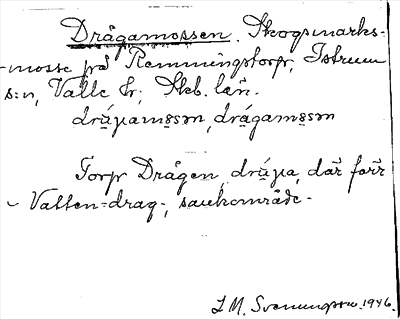 Drågamossen. Skogsmarks-
-mosse på Remmingstorp, Istrum
s:n, Valle hr; Skb. län.
dråɣamɷsən, drågamɷsən
Torp Drågen, dråɣa, där förr
Vatten=drag-, sankområde-
J M. Svenungsson. 1946.